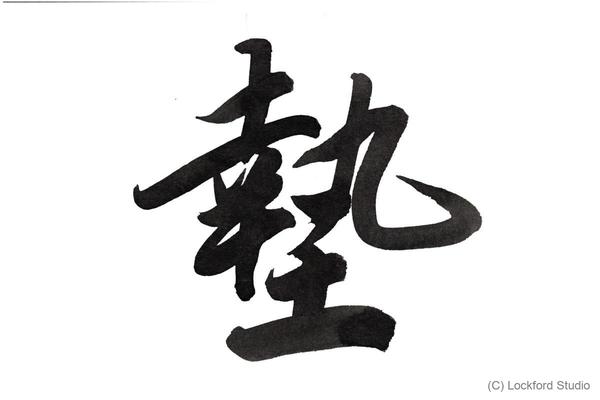 墊
(C) Lockford Studio